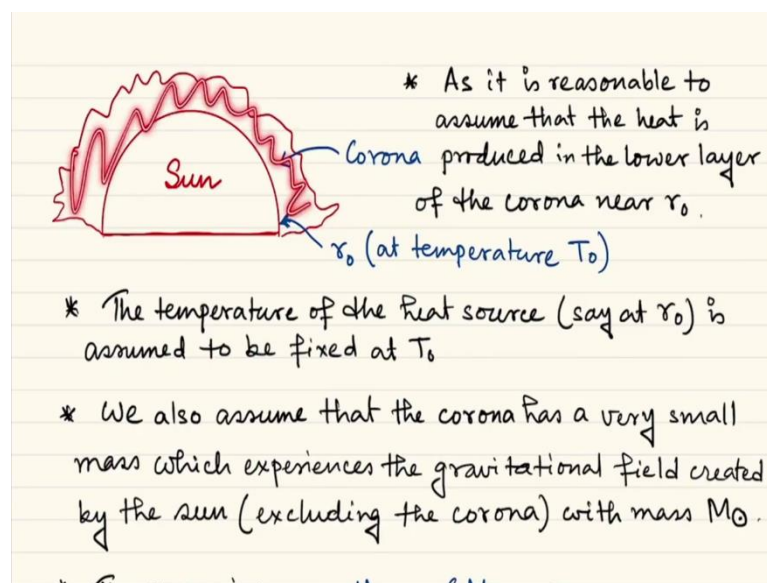 * As it is reasonable to
assume that the heat is
Corona produced in the lower layer
of the corona near r₀.
Sun
r₀ (at temperature T₀)
* The temperature of the heat source (say at r₀) is
assumed to be fixed at T₀
* We also assume that the corona has a very small
mass which experiences the gravitational field created
by the sun (excluding the corona) with mass M⊙.